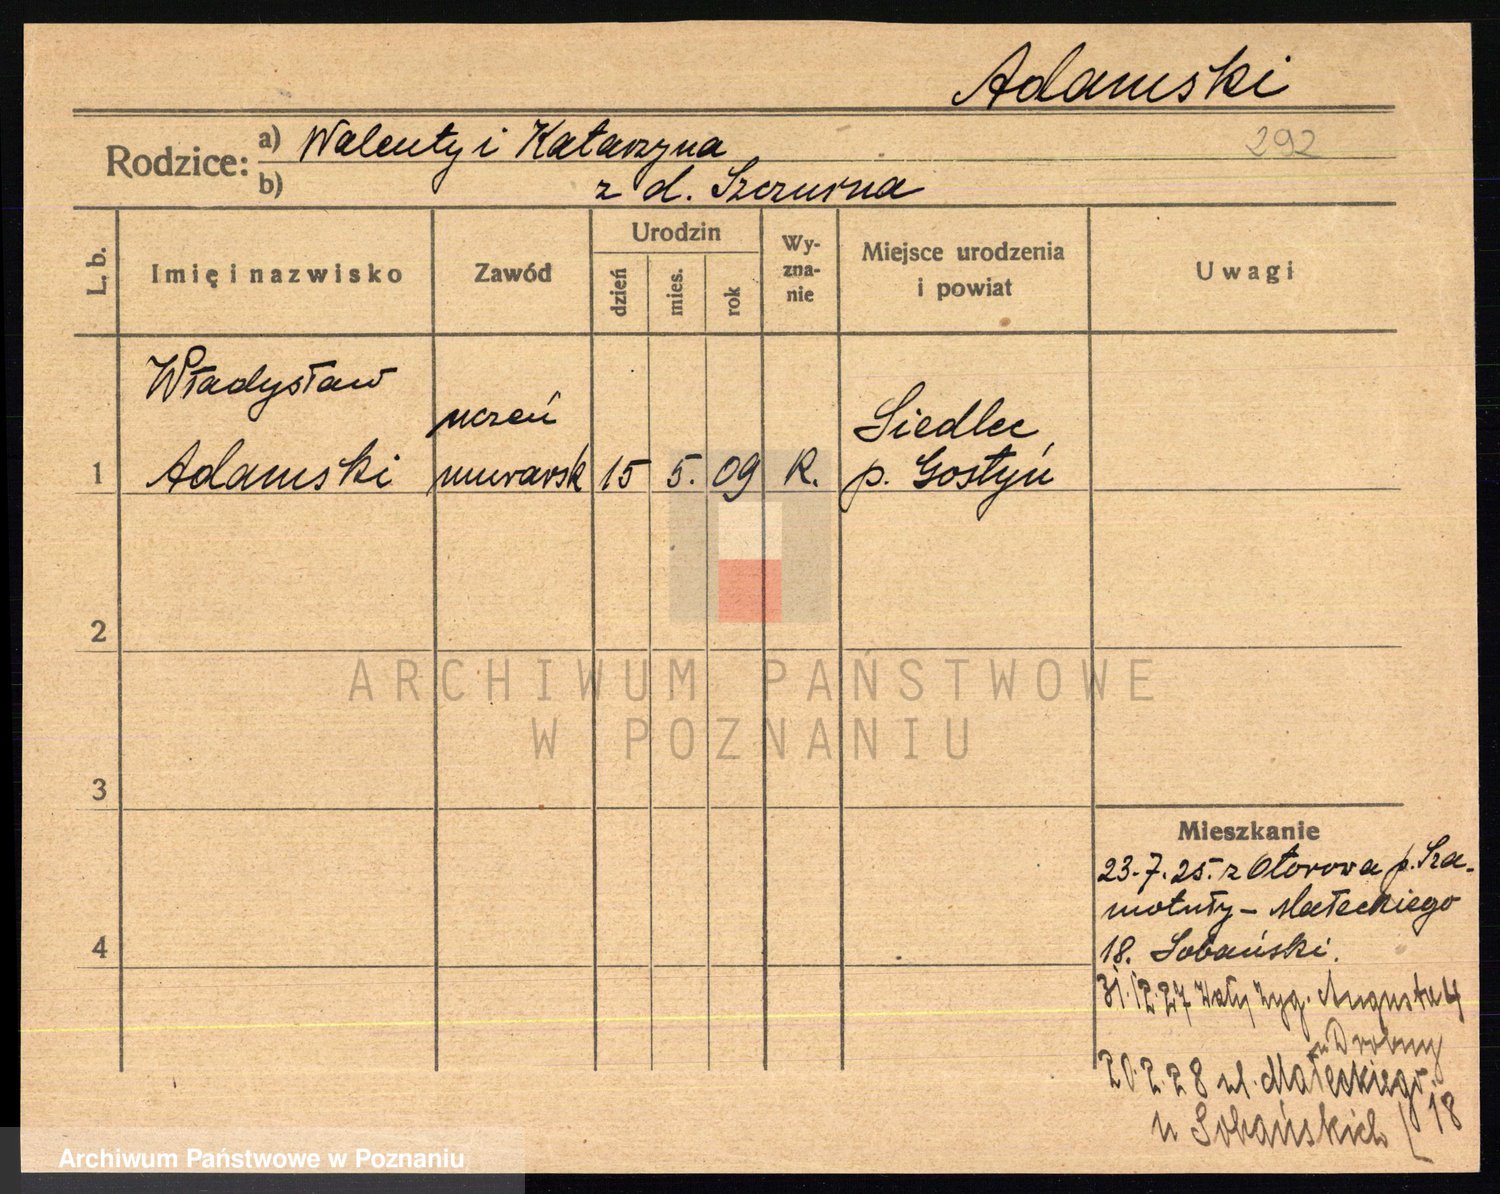 Adamski
292
Rodzice: a) Walenty i Katarzyna
b) z d. Szczurna
L. b.
Imię i nazwisko
Zawód
Urodzin
dzień
mies.
rok
Wy-
zna-
nie
Miejsce urodzenia
i powiat
Uwagi
Władysław
uczeń
Siedlec
1 Adamski murarsk 15 5. 09 R. p. Gostyń
2
3
4
Mieszkanie
23.7.25. z Otorowa p. Sza-
motuły – Małeckiego
18. Sobański.
31.12.27 Wały Zyg. Augusta 4
u Drobny
20.2.28 ul. Małeckiego
u Sobańskich 18
ARCHIWUM PAŃSTWOWE
W POZNANIU
Archiwum Państwowe w Poznaniu